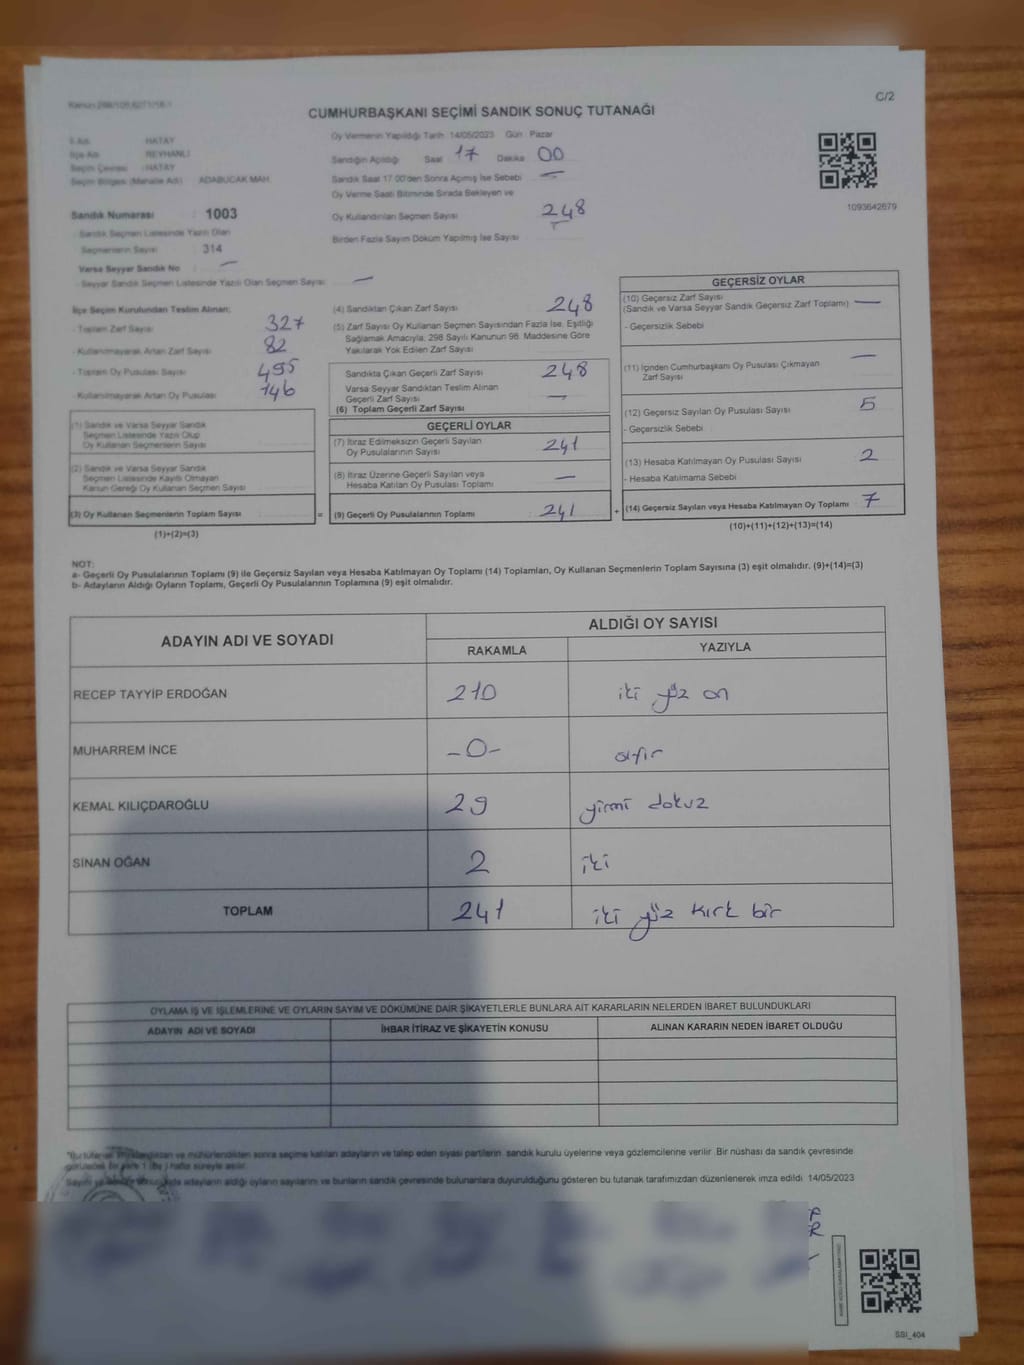 Kanun 298/105,6271/18-1
C/2
CUMHURBAŞKANI SEÇİMİ SANDIK SONUÇ TUTANAĞI
İl Adı : HATAY
İlçe Adı : REYHANLI
Seçim Çevresi : HATAY
Seçim Bölgesi (Mahalle Adı) : ADABUCAK MAH.
Sandık Numarası : 1003
- Sandık Seçmen Listesinde Yazılı Olan
Seçmenlerin Sayısı : 314
Varsa Seyyar Sandık No : —
- Seyyar Sandık Seçmen Listesinde Yazılı Olan Seçmen Sayısı : —
Oy Vermenin Yapıldığı Tarih : 14/05/2023 Gün : Pazar
Sandığın Açıldığı Saat 17 Dakika 00
Sandık Saat 17.00'den Sonra Açılmış İse Sebebi —
Oy Verme Saati Bitiminde Sırada Bekleyen ve
Oy Kullandırılan Seçmen Sayısı 248
Birden Fazla Sayım Döküm Yapılmış İse Sayısı
1093642679
İlçe Seçim Kurulundan Teslim Alınan;
- Toplam Zarf Sayısı 327
- Kullanılmayarak Artan Zarf Sayısı 82
- Toplam Oy Pusulası Sayısı 495
- Kullanılmayarak Artan Oy Pusulası 146
(1) Sandık ve Varsa Seyyar Sandık
Seçmen Listesinde Yazılı Olup
Oy Kullanan Seçmenlerin Sayısı
(2) Sandık ve Varsa Seyyar Sandık
Seçmen Listesinde Kayıtlı Olmayan
Kanun Gereği Oy Kullanan Seçmen Sayısı
(3) Oy Kullanan Seçmenlerin Toplam Sayısı
(1)+(2)=(3)
(4) Sandıktan Çıkan Zarf Sayısı 248
(5) Zarf Sayısı Oy Kullanan Seçmen Sayısından Fazla İse, Eşitliği
Sağlamak Amacıyla, 298 Sayılı Kanunun 98. Maddesine Göre
Yakılarak Yok Edilen Zarf Sayısı
Sandıkta Çıkan Geçerli Zarf Sayısı 248
Varsa Seyyar Sandıktan Teslim Alınan
Geçerli Zarf Sayısı —
(6) Toplam Geçerli Zarf Sayısı
GEÇERLİ OYLAR
(7) İtiraz Edilmeksizin Geçerli Sayılan
Oy Pusulalarının Sayısı 241
(8) İtiraz Üzerine Geçerli Sayılan veya
Hesaba Katılan Oy Pusulası Toplamı —
= (9) Geçerli Oy Pusulalarının Toplamı 241 +
GEÇERSİZ OYLAR
(10) Geçersiz Zarf Sayısı
(Sandık ve Varsa Seyyar Sandık Geçersiz Zarf Toplamı) —
- Geçersizlik Sebebi
(11) İçinden Cumhurbaşkanı Oy Pusulası Çıkmayan
Zarf Sayısı —
(12) Geçersiz Sayılan Oy Pusulası Sayısı 5
- Geçersizlik Sebebi
(13) Hesaba Katılmayan Oy Pusulası Sayısı 2
- Hesaba Katılmama Sebebi
(14) Geçersiz Sayılan veya Hesaba Katılmayan Oy Toplamı 7
(10)+(11)+(12)+(13)=(14)
NOT:
a- Geçerli Oy Pusulalarının Toplamı (9) ile Geçersiz Sayılan veya Hesaba Katılmayan Oy Toplamı (14) Toplamları, Oy Kullanan Seçmenlerin Toplam Sayısına (3) eşit olmalıdır. (9)+(14)=(3)
b- Adayların Aldığı Oyların Toplamı, Geçerli Oy Pusulalarının Toplamına (9) eşit olmalıdır.
ADAYIN ADI VE SOYADI ALDIĞI OY SAYISI
RAKAMLA YAZIYLA
RECEP TAYYİP ERDOĞAN 210 iki yüz on
MUHARREM İNCE -0- sıfır
KEMAL KILIÇDAROĞLU 29 yirmi dokuz
SİNAN OĞAN 2 iki
TOPLAM 241 iki yüz kırk bir
OYLAMA İŞ VE İŞLEMLERİNE VE OYLARIN SAYIM VE DÖKÜMÜNE DAİR ŞİKAYETLERLE BUNLARA AİT KARARLARIN NELERDEN İBARET BULUNDUKLARI
ADAYIN ADI VE SOYADI İHBAR İTİRAZ VE ŞİKAYETİN KONUSU ALINAN KARARIN NEDEN İBARET OLDUĞU
mühürlendikten sonra seçime katılan adayların ve talep eden siyasi partilerin sandık kurulu üyelerine veya gözlemcilerine verilir. Bir nüshası da sandık çevresinde
hafta süreyle asılır.
adayların aldığı oyların sayılarını ve bunların sandık çevresinde bulunanlara duyurulduğunu gösteren bu tutanak tarafımızdan düzenlenerek imza edildi. 14/05/2023
SSI_404